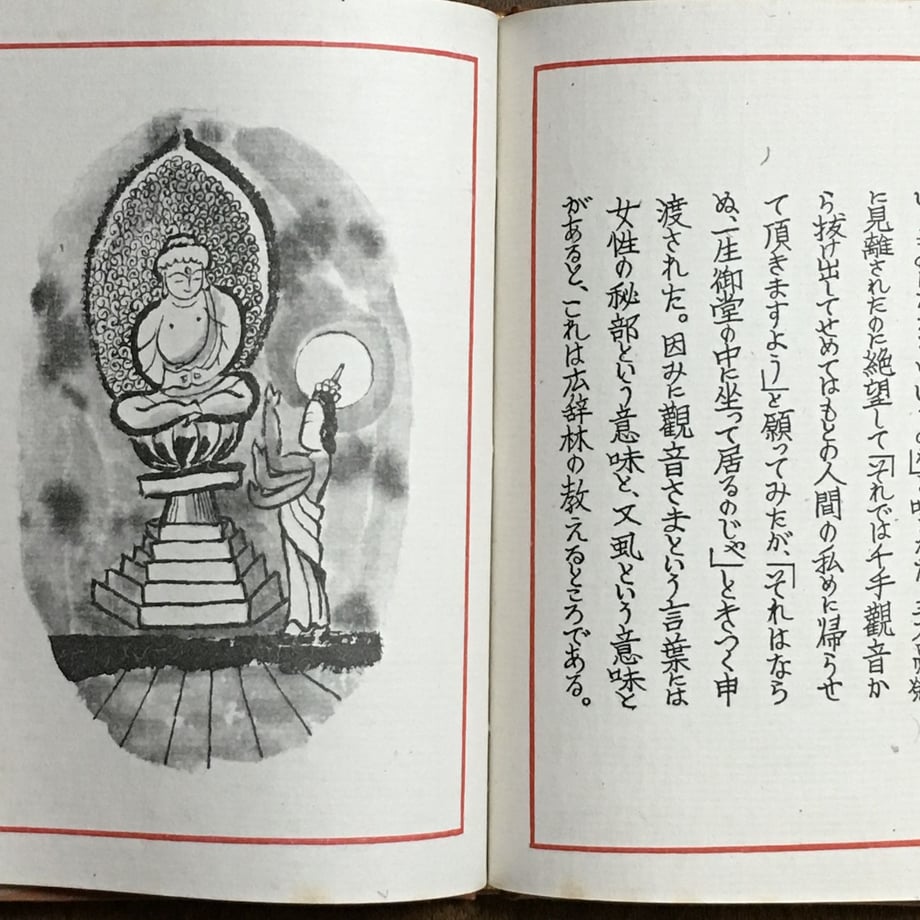 に見離されたのに絶望して「それでは千手觀音か
ら抜け出してせめてはもとの人間の私めに帰らせ
て頂きますよう」と願ってみたが、「それはなら
ぬ、一生御堂の中に坐って居るのじや」ときつく申
渡された。因みに觀音さまという言葉には
女性の秘部という意味と、又虱という意味と
があると、これは広辞林の教えるところである。